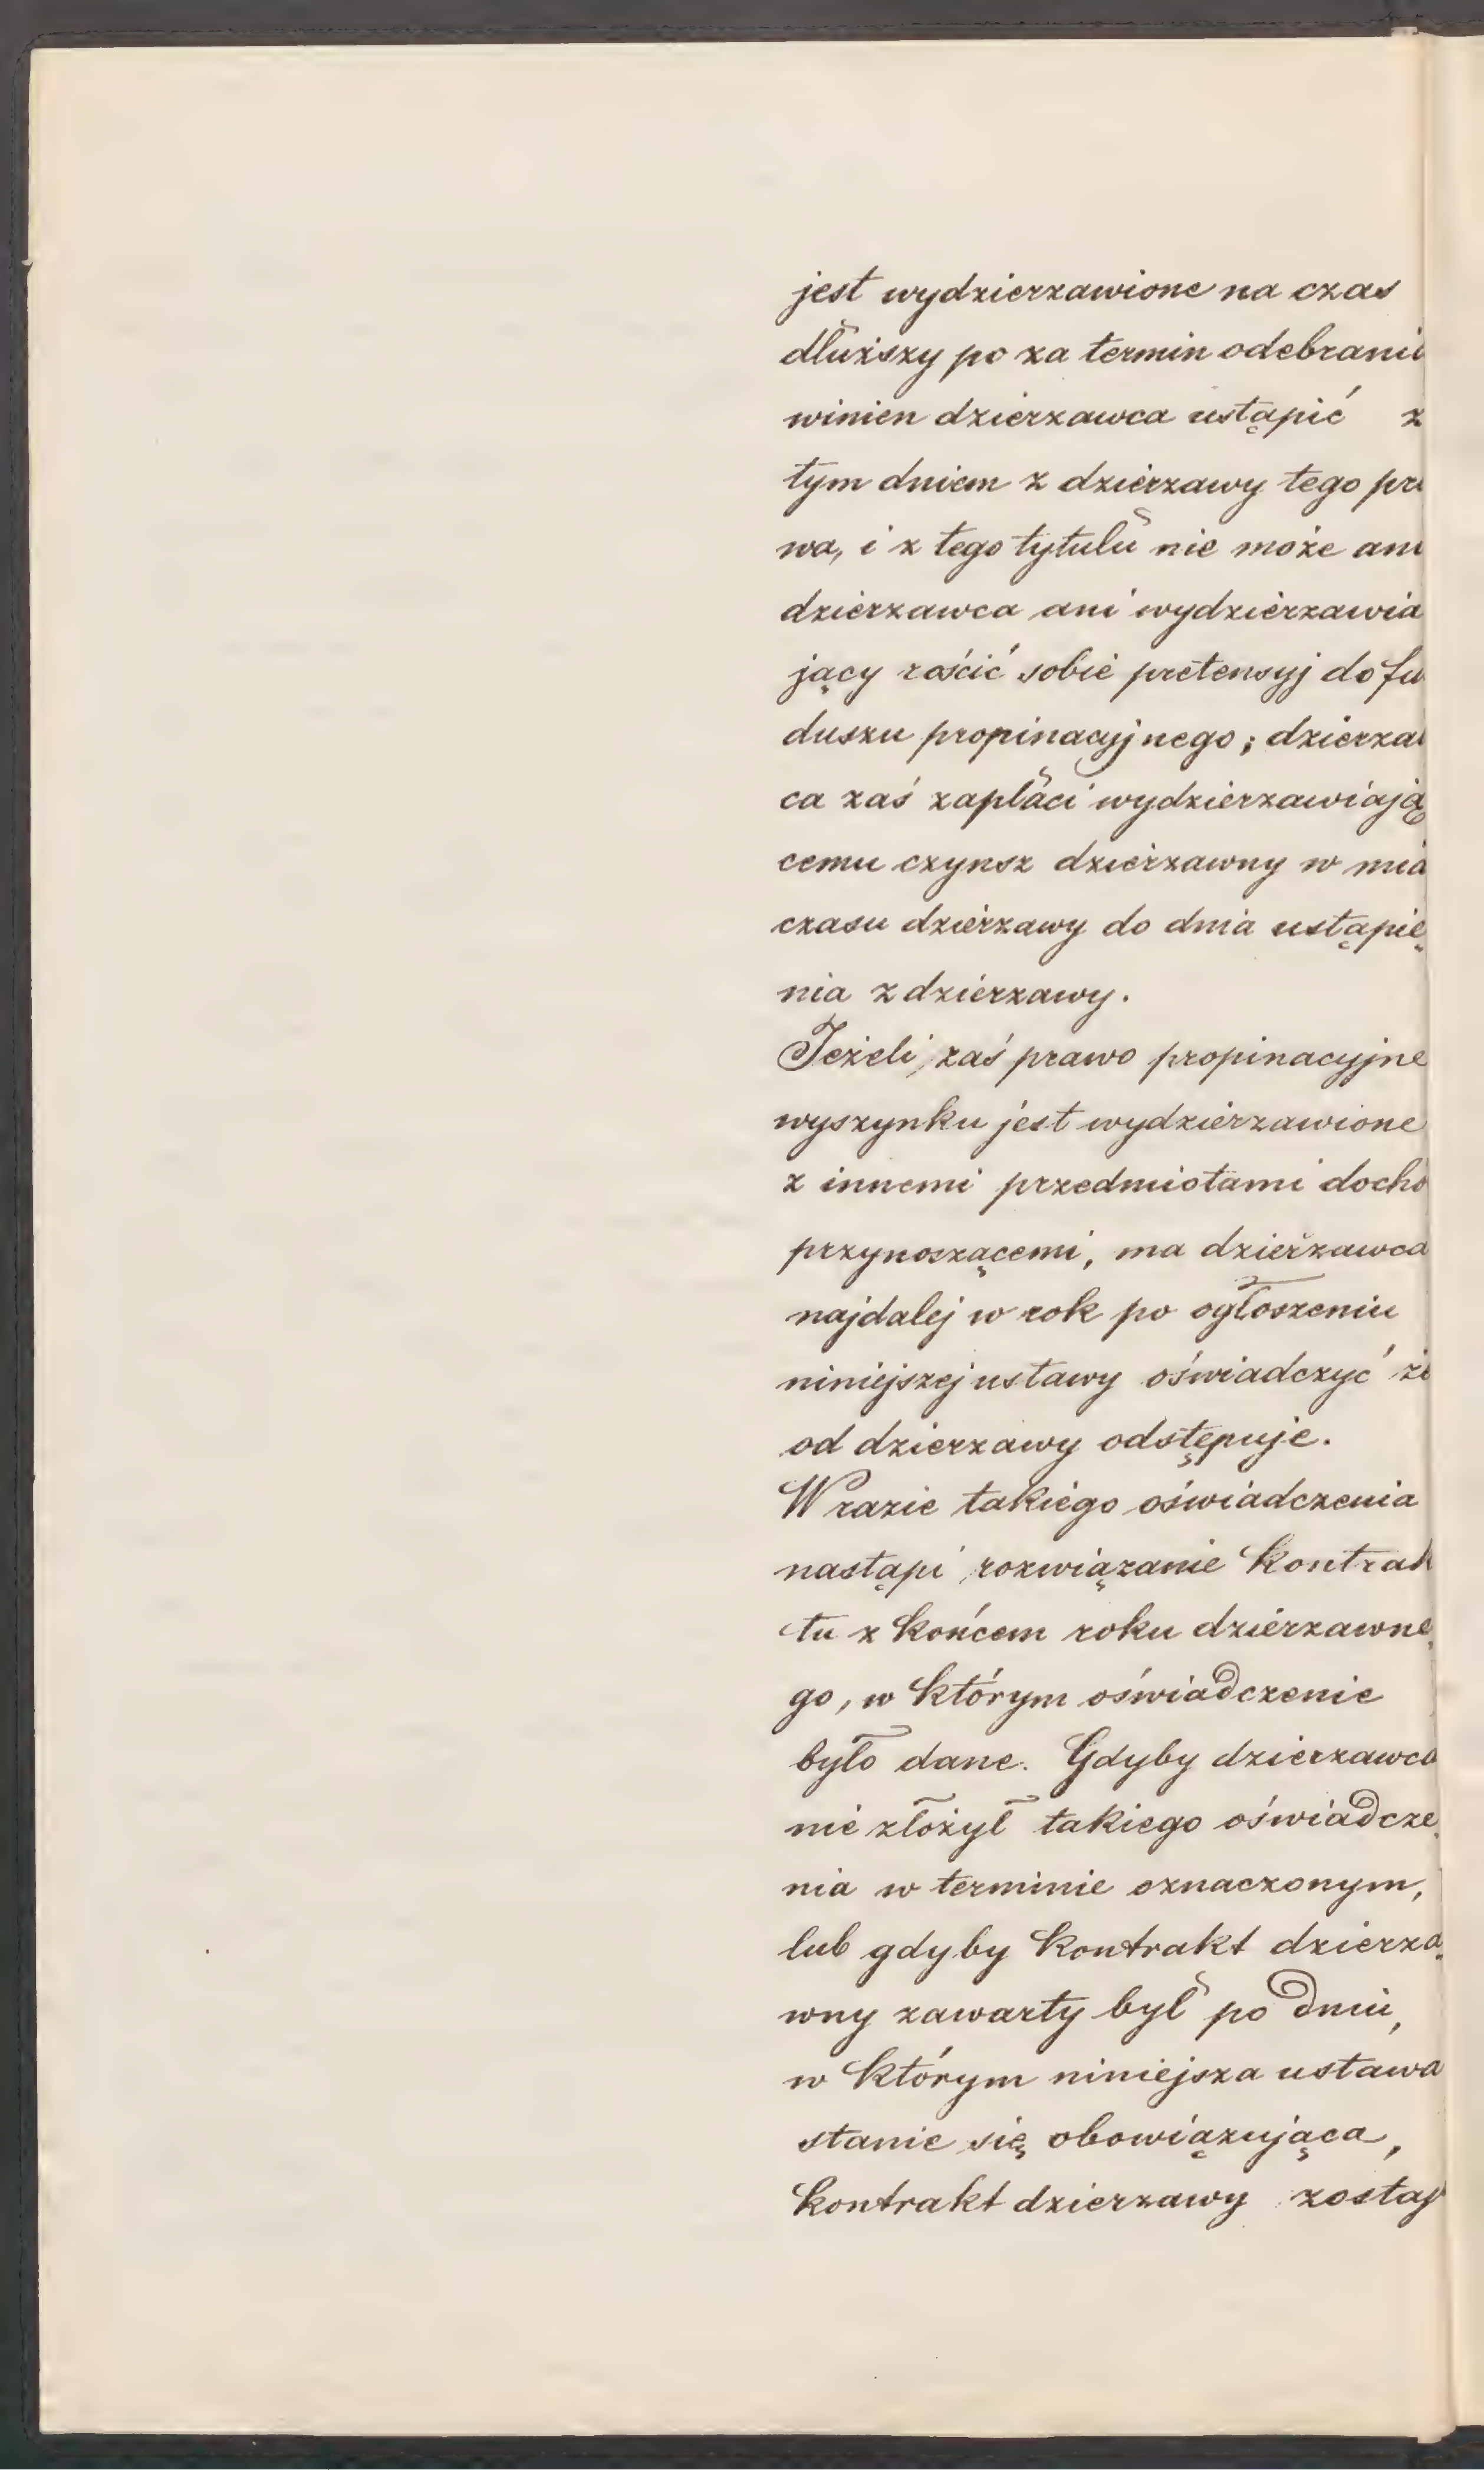 jest wydzierzawione na czas
dłuższy po za termin odebrani
winien dzierzawca ustąpić z
tym dniem z dzierzawy tego pra
wa, i z tego tytułu nie może ani
dzierzawca ani wydzierzawia
jący rościć sobie pretensyj do fu
duszu propinacyjnego; dzierza
ca zaś zapłaci wydzierzawiają
cemu czynsz dzierzawny w mia
czasu dzierzawy do dnia ustąpie
nia z dzierzawy.
Jeżeli zaś prawo propinacyjne
wyszynku jest wydzierzawione
z innemi przedmiotami docho
przynoszącemi, ma dzierzawca
najdalej w rok po ogłoszeniu
niniejszej ustawy oświadczyć że
od dzierzawy odstępuje.
W razie takiego oświadczenia
nastąpi rozwiązanie kontrak
tu z końcem roku dzierzawne
go, w którym oświadczenie
było dane. Gdyby dzierzawca
nie złożył takiego oświadcze
nia w terminie oznaczonym,
lub gdyby kontrakt dzierza
wny zawarty był po dniu,
w którym niniejsza ustawa
stanie się obowiązująca,
kontrakt dzierzawy zostaj